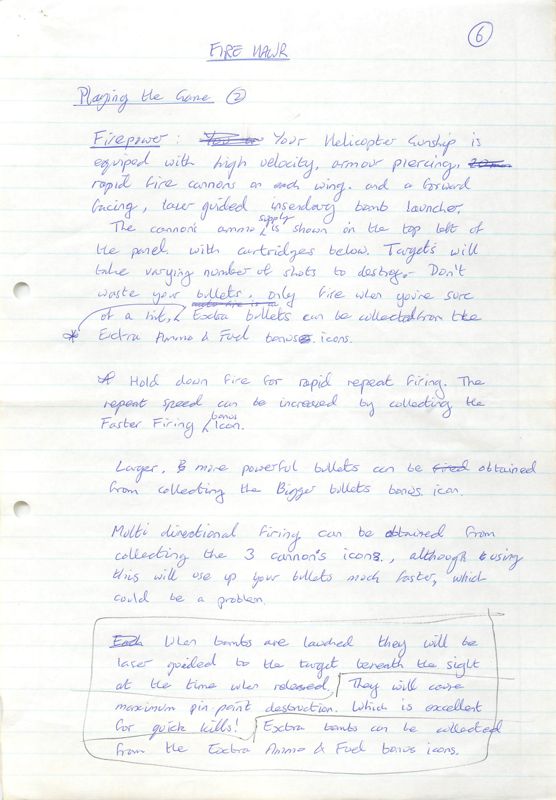 6
FIRE HAWK
Playing the Game 2
Firepower : Your Helicopter Gunship is
equiped with high velocity, armour piercing,
rapid fire cannons on each wing. and a forward
facing, laser guided insendary bomb launcher.
The cannons ammo supply is shown in the top left of
the panel with cartridges below. Targets will
take varying number of shots to destroy. Don't
waste your bullets, only fire when you're sure
of a hit. Extra bullets can be collected from the
* Extra Ammo & Fuel bonus icons.
* Hold down fire for rapid repeat firing. The
repeat speed can be increased by collecting the
Faster Firing bonus icon.
Larger, & more powerful bullets can be obtained
from collecting the Bigger bullets bonus icon.
Multi directional firing can be obtained from
collecting the 3 cannon's icons, although using
this will use up your bullets much faster, which
could be a problem.
When bombs are launched they will be
laser guided to the target beneath the sight
at the time when released. They will cause
maximum pin point destruction. Which is excellent
for quick kills! Extra bombs can be collected
from the Extra Ammo & Fuel bonus icons.